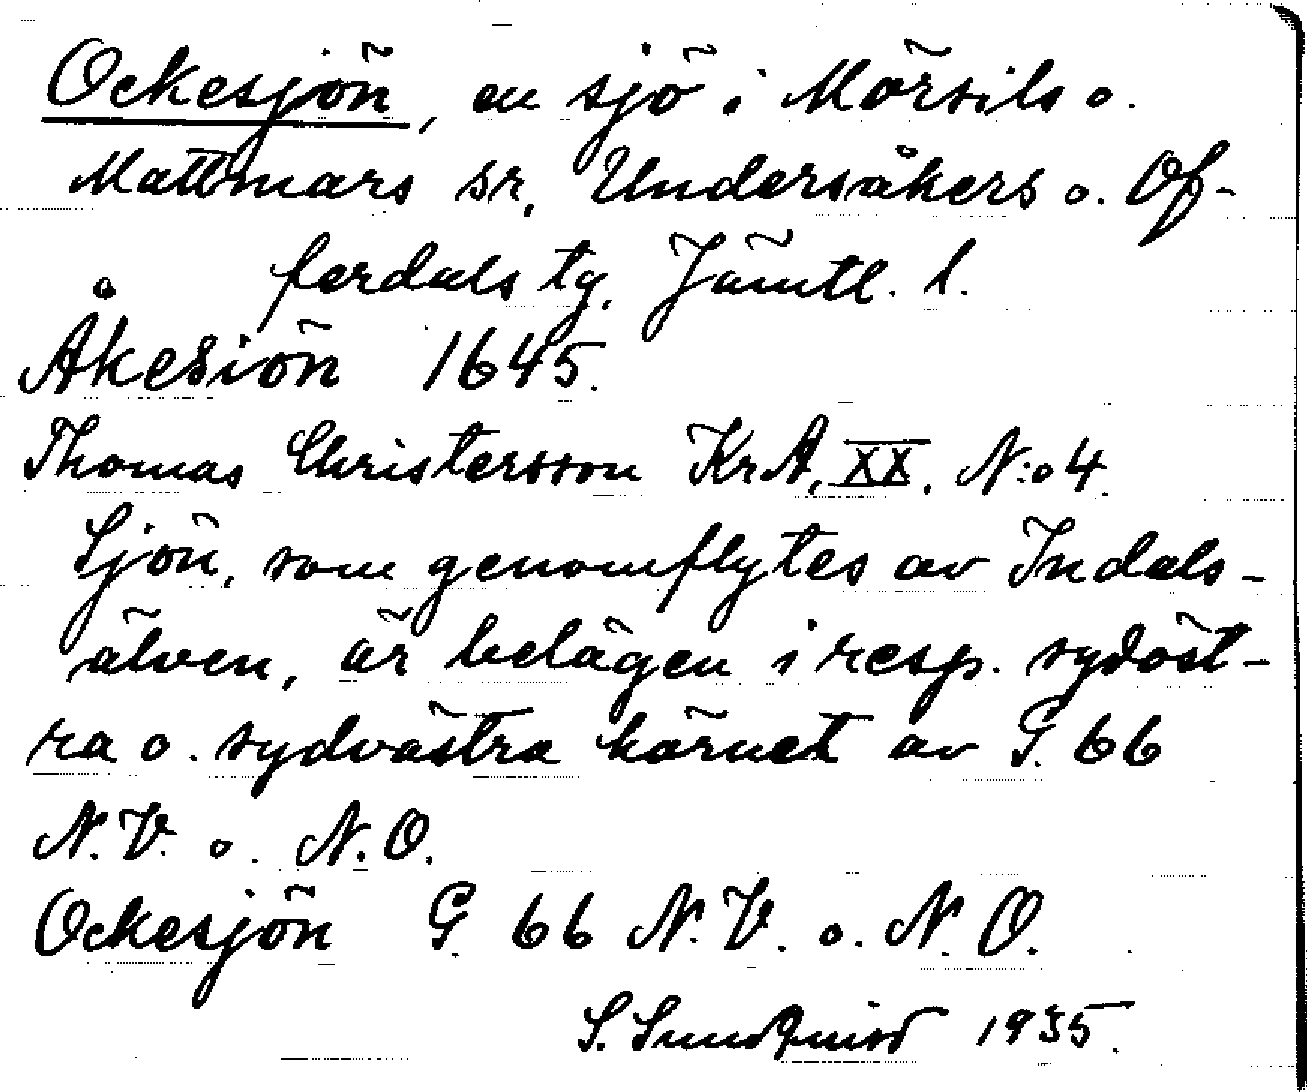 Ockesjön, en sjö i Mörsils o.
Mattmars sr, Undersåkers o. Of-
ferdals tg. Jämtl. l.
Åkesiön 1645.
Thomas Christersson KrA, XX, N:o 4.
Sjön, som genomflytes av Indals-
älven, är belägen i resp. sydöst-
ra o. sydvästra hörnet av G. 66
N.V. o. N.O.
Ockesjön G. 66 N.V. o. N.O.
S. Sundqvist 1935.